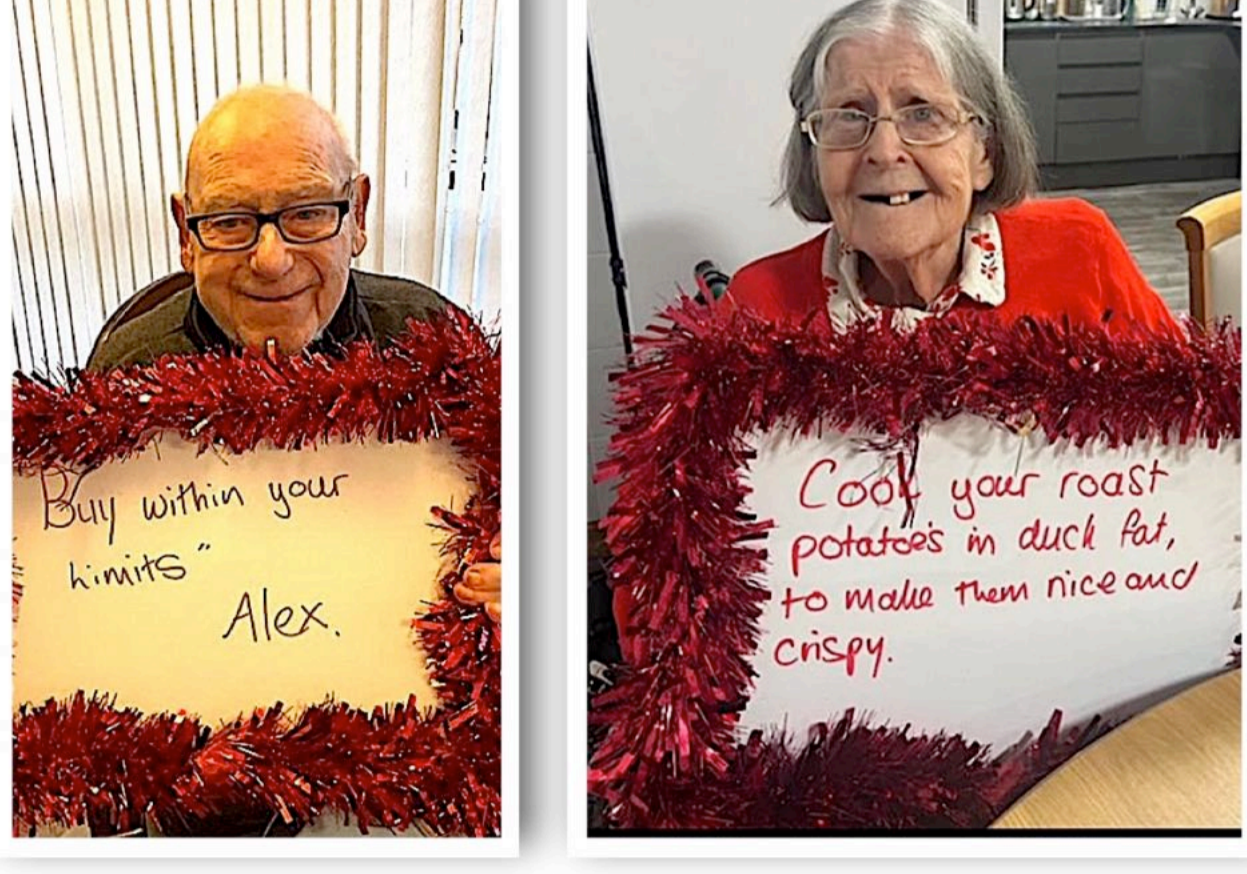 Buy within your
Limits"
Alex.
Cook your roast
potatoe's in duck fat,
to make them nice and
crispy.